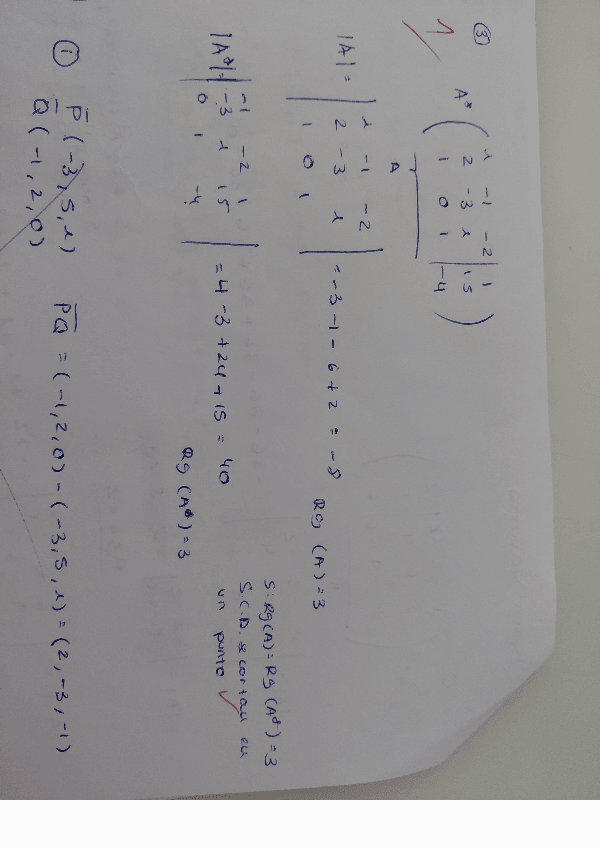 ③
1
A* ( 1 -1 -2 | 1
2 -3 1 | 15
1 0 1 | -4 )
A
|A| = | 1 -1 -2
2 -3 1
1 0 1 | = -3 -1 - 6 + 2 = -8 Rg (A) = 3
Si Rg(A) = Rg (A*) = 3
S.C.D. se cortan en
un punto ✓
|A*| = | -1 -2 1
-3 1 15
0 1 -4 | = 4 - 3 + 24 + 15 = 40
Rg (A*) = 3
① P (-3, 5, 1) PQ = (-1, 2, 0) - (-3, 5, 1) = (2, -3, -1)
Q (-1, 2, 0)